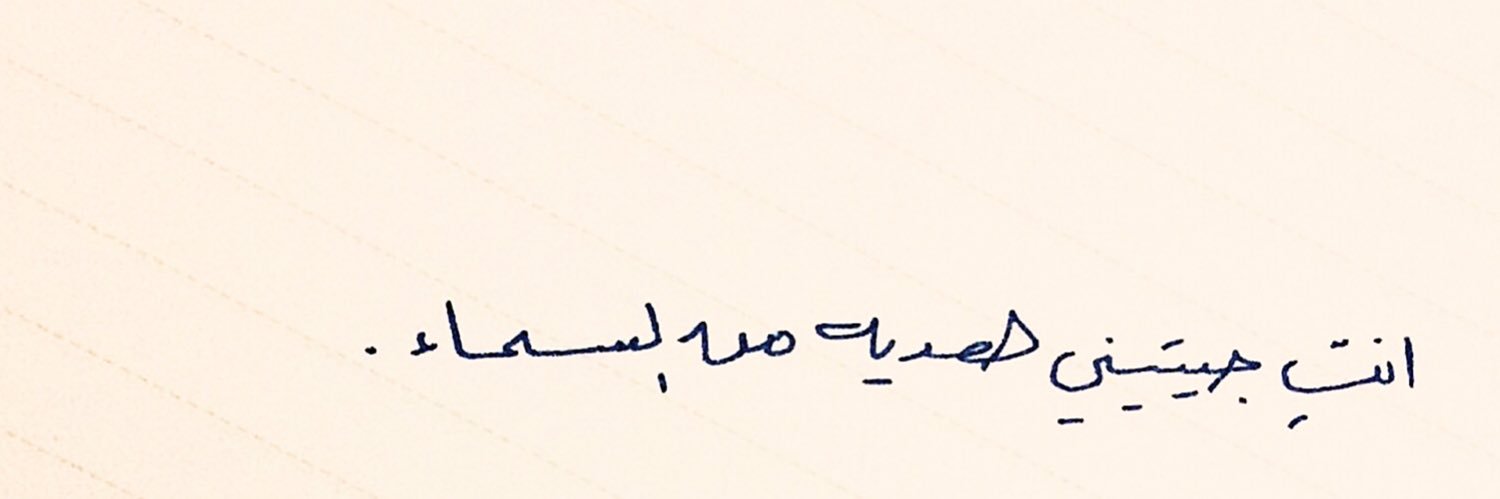 انتِ جيتيني كهديه من السماء .